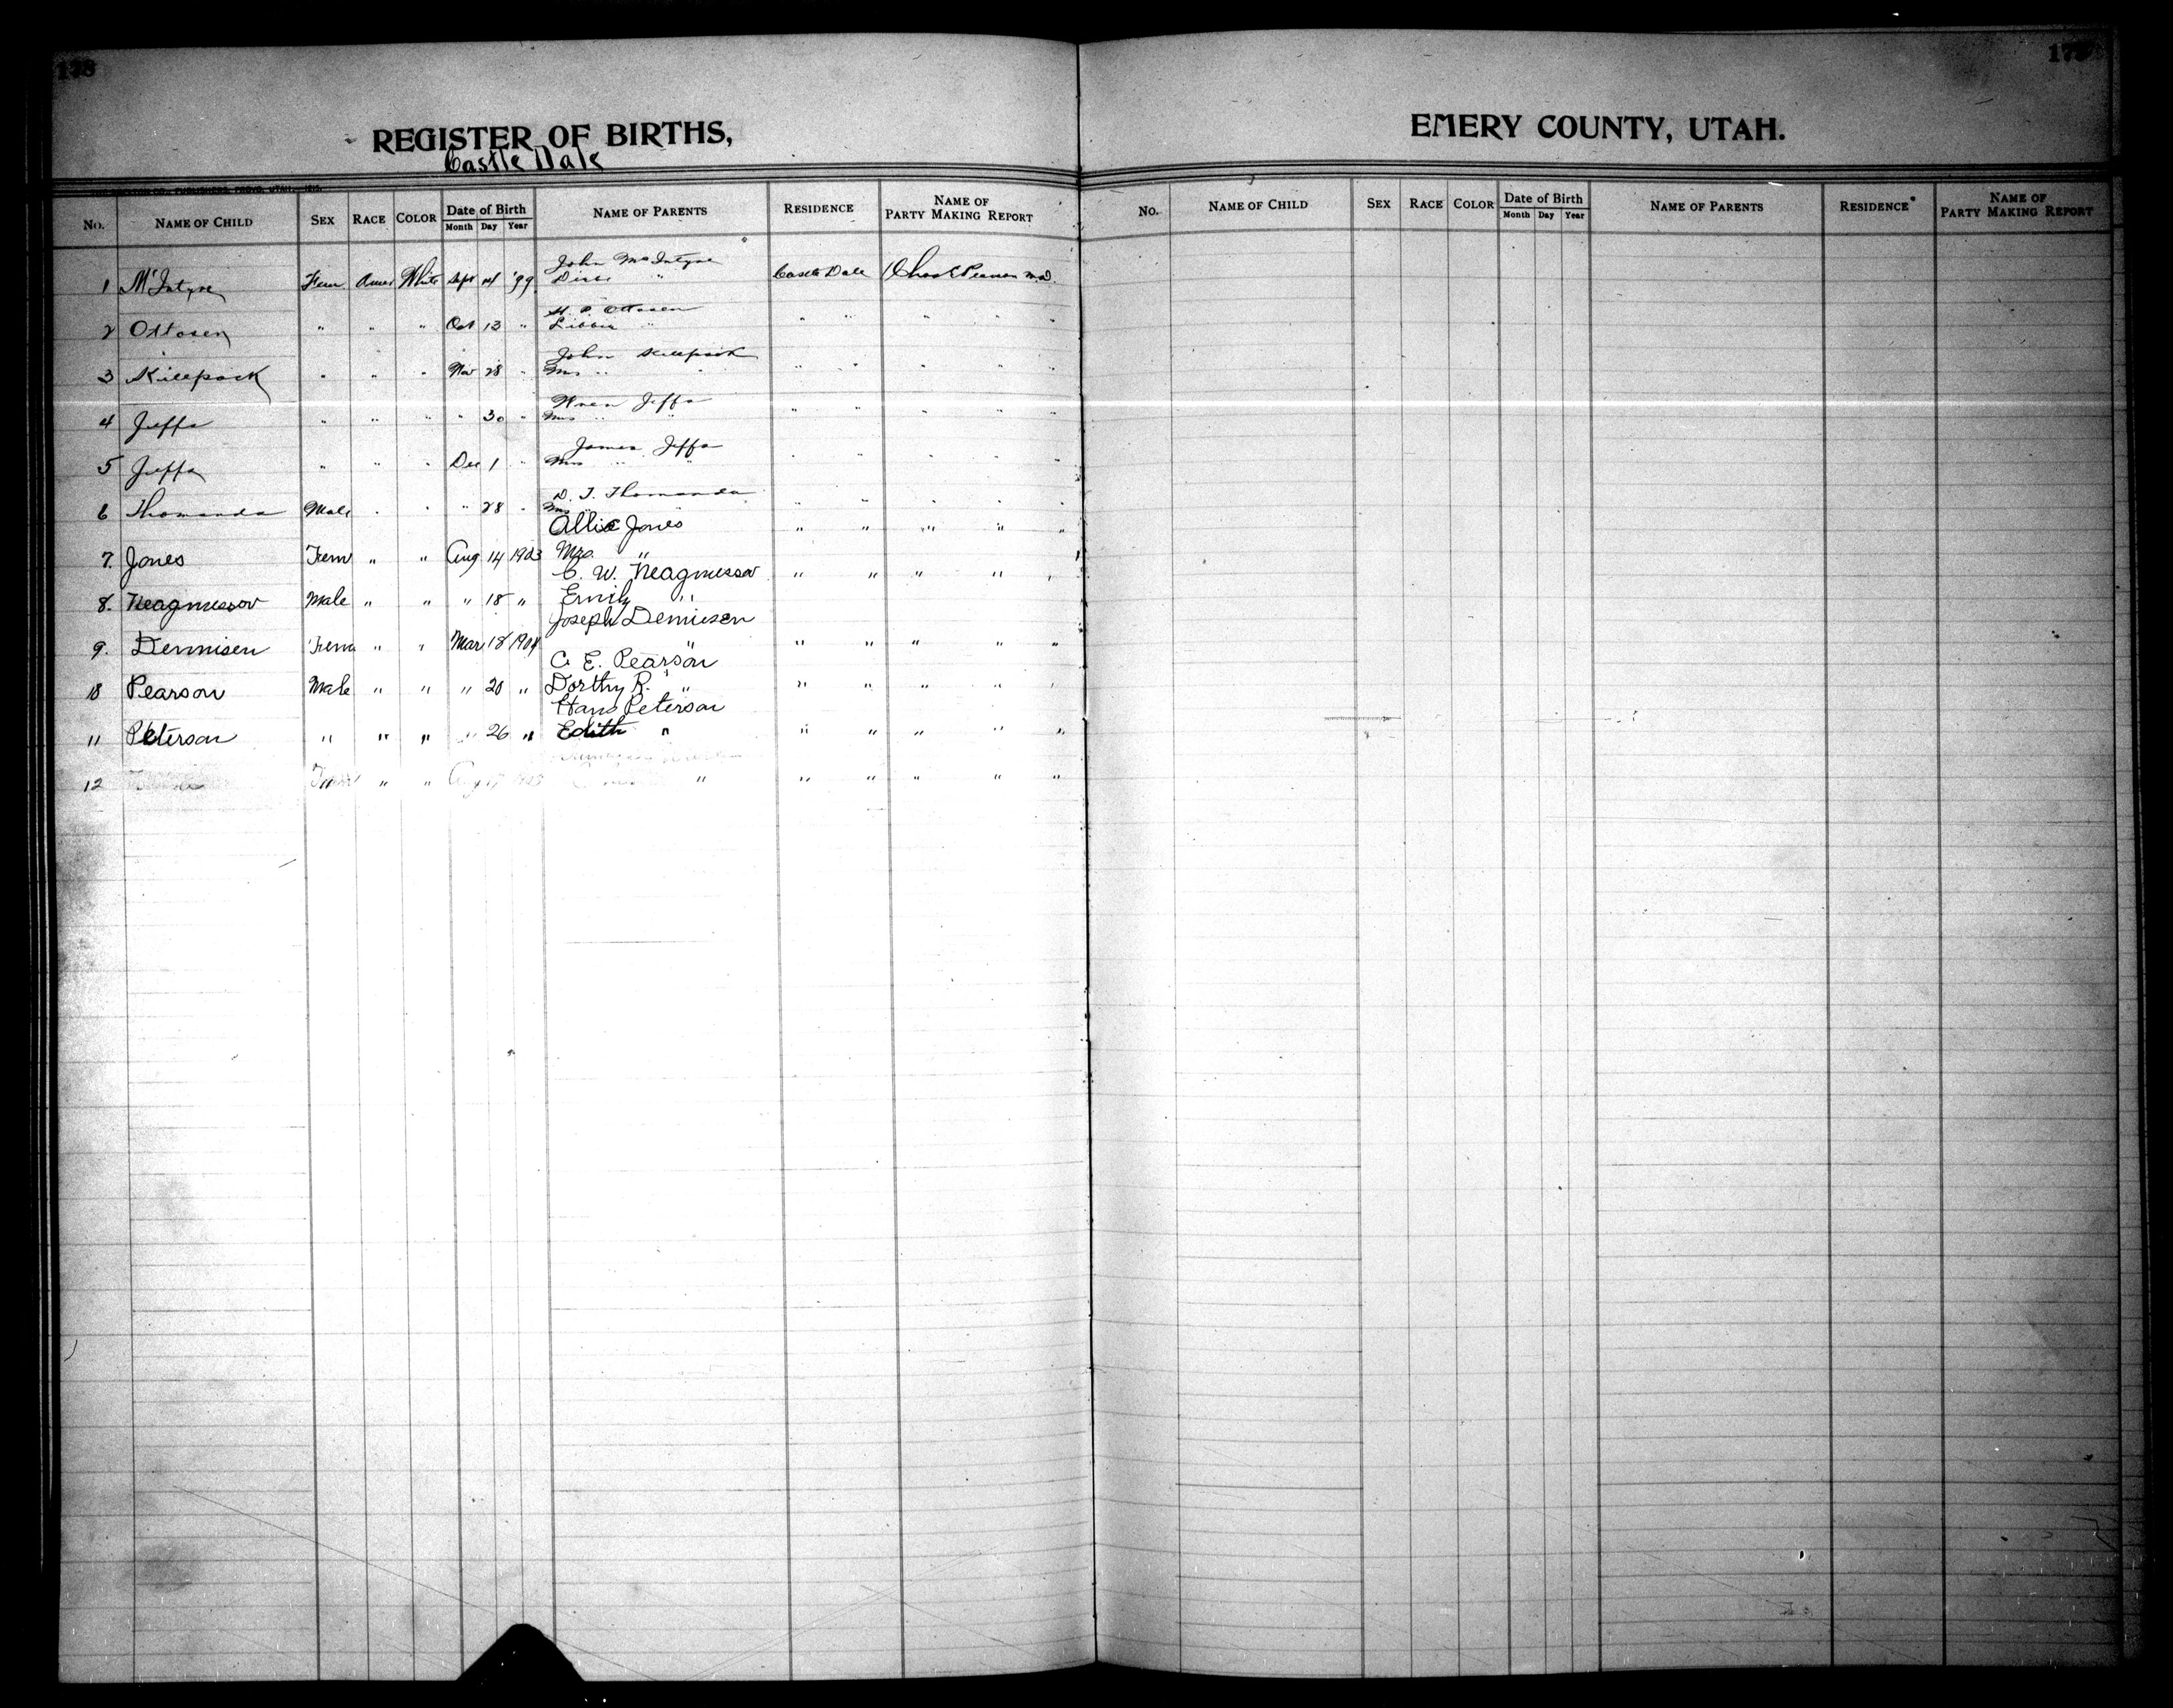 178
REGISTER OF BIRTHS,
Castle Dale
No. NAME OF CHILD SEX RACE COLOR Date of Birth Month Day Year NAME OF PARENTS RESIDENCE NAME OF PARTY MAKING REPORT
John McIntyre
1 McIntyre Fem Amer White Sept 14 '99 " Castle Dale Chas E Pearson M.D.
Ottosen
2 Ottosen " " " Oct 13 " Libbie " " " " " "
John Killpack
3 Killpack " " " Nov 28 " Mrs " " " " " " "
Jeffs
4 Jeffs " " " " 30 " Mrs " " " " " " "
James Jeffs
5 Jeffs " " " Dec 1 " Mrs " " " " " " "
D. T. Thomander
6 Thomander Male " " " 28 " Mrs " " " " " " "
Allie Jones
7. Jones Fem " " Aug 14 1903 Mrs. " " " " " "
C. W. Magnusson
8. Magnusson Male " " " 18 " Emily " " " " " "
Joseph Dennisen
9. Dennisen Fem " " Mar 18 1904 " " " " " "
C. E. Pearson
10 Pearson Male " " " 20 " Dorthy R. " " " " " "
Hans Peterson
11 Peterson " " " " 26 " Edith " " " " " "
12 Fem " " Aug 17 " " " " " "
EMERY COUNTY, UTAH.
No. NAME OF CHILD SEX RACE COLOR Date of Birth Month Day Year NAME OF PARENTS RESIDENCE NAME OF PARTY MAKING REPORT